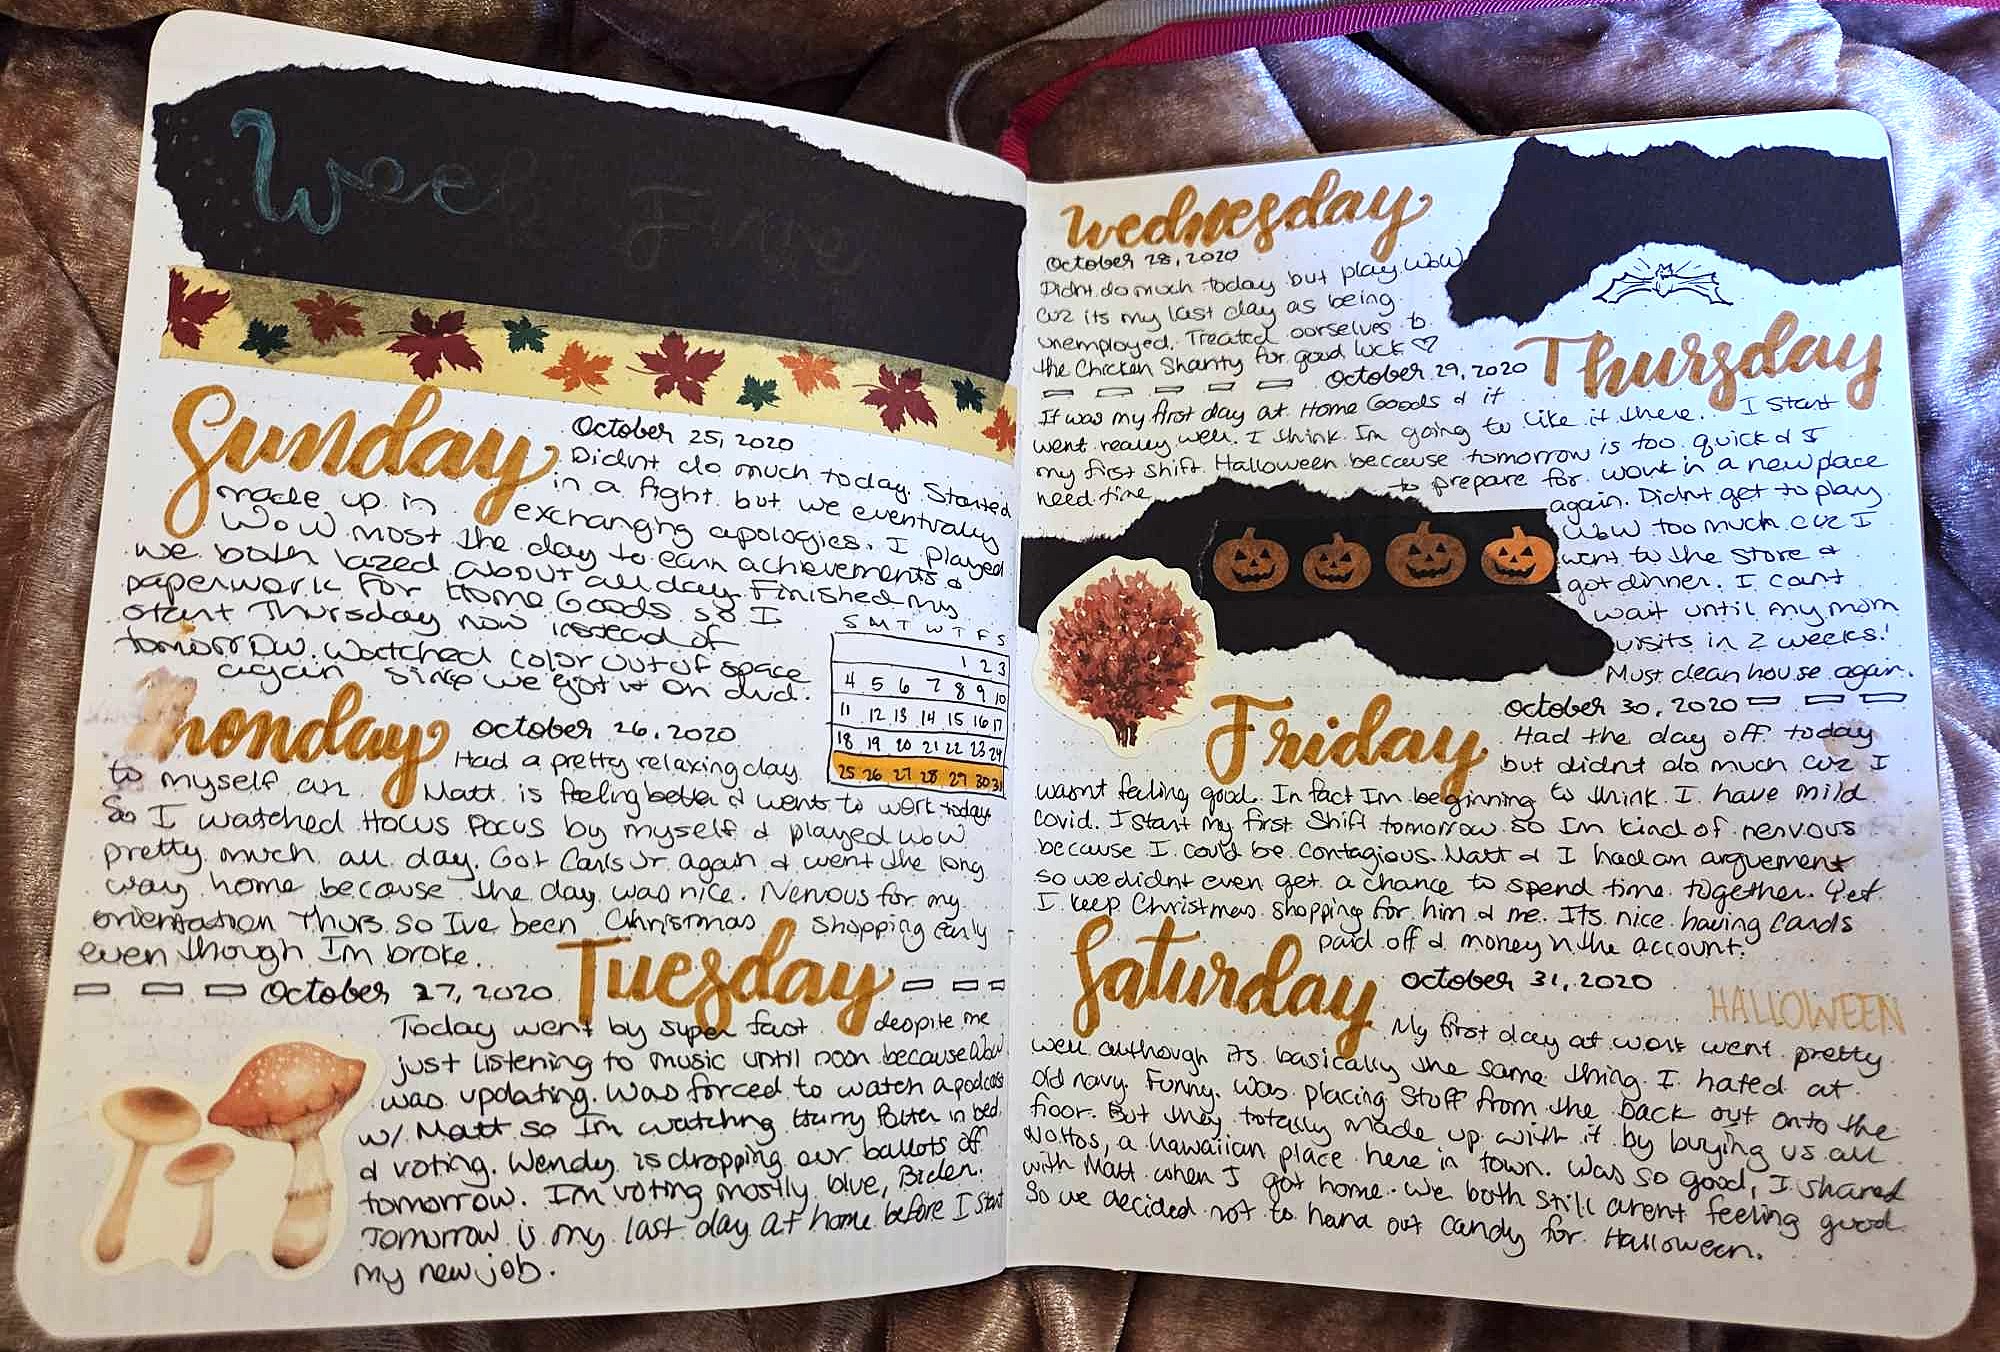 Week Five
Sunday
October 25, 2020
Didnt do much today. Started
in a fight but we eventually
made up in exchanging apologies. I played
WoW most the day to earn achievements &
we both lazed about all day. Finished my
paperwork for Home Goods so I
start Thursday now instead of
tomorrow. Watched Color Out of Space
again since we got it on dvd.
S M T W T F S
1 2 3
4 5 6 7 8 9 10
11 12 13 14 15 16 17
18 19 20 21 22 23 24
25 26 27 28 29 30 31
Monday
October 26, 2020
Had a pretty relaxing day
to myself cuz Matt is feeling better & went to work today.
So I watched Hocus Pocus by myself & played WoW
pretty much all day. Got Carls Jr again & went the long
way home because the day was nice. Nervous for my
orientation Thurs so Ive been Christmas shopping early
even though Im broke.
October 27, 2020
Tuesday
Today went by super fast despite me
just listening to music until noon because WoW
was updating. Was forced to watch a podcast
w/ Matt so Im watching Harry Potter in bed
& voting. Wendy is dropping our ballots off
tomorrow. Im voting mostly blue, Biden.
Tomorrow is my last day at home before I start
my new job.
Wednesday
October 28, 2020
Didnt do much today but play WoW
cuz its my last day as being
unemployed. Treated ourselves to
the Chicken Shanty for good luck ♡
October 29, 2020
Thursday
It was my first day at Home Goods & it
went really well. I think Im going to like it there. I start
my first shift Halloween because tomorrow is too quick & I
need time to prepare for work in a new place
again. Didnt get to play
WoW too much cuz I
went to the store &
got dinner. I cant
wait until my mom
visits in 2 weeks!
Must clean house again.
Friday
October 30, 2020
Had the day off today
but didnt do much cuz I
wasnt feeling good. In fact Im beginning to think I have mild
covid. I start my first shift tomorrow so Im kind of nervous
because I could be contagious. Matt & I had an arguement
so we didnt even get a chance to spend time together. Yet
I keep Christmas shopping for him & me. Its nice having cards
paid off & money n the account.
Saturday
October 31, 2020
HALLOWEEN
My first day at work went pretty
well although its basically the same thing I hated at
old navy. Funny. Was placing stuff from the back out onto the
floor. But they totally made up with it by buying us all
a Hawaiian place here in town. Was so good, I shared
with Matt when I got home. We both still arent feeling good
so we decided not to hand out candy for Halloween.